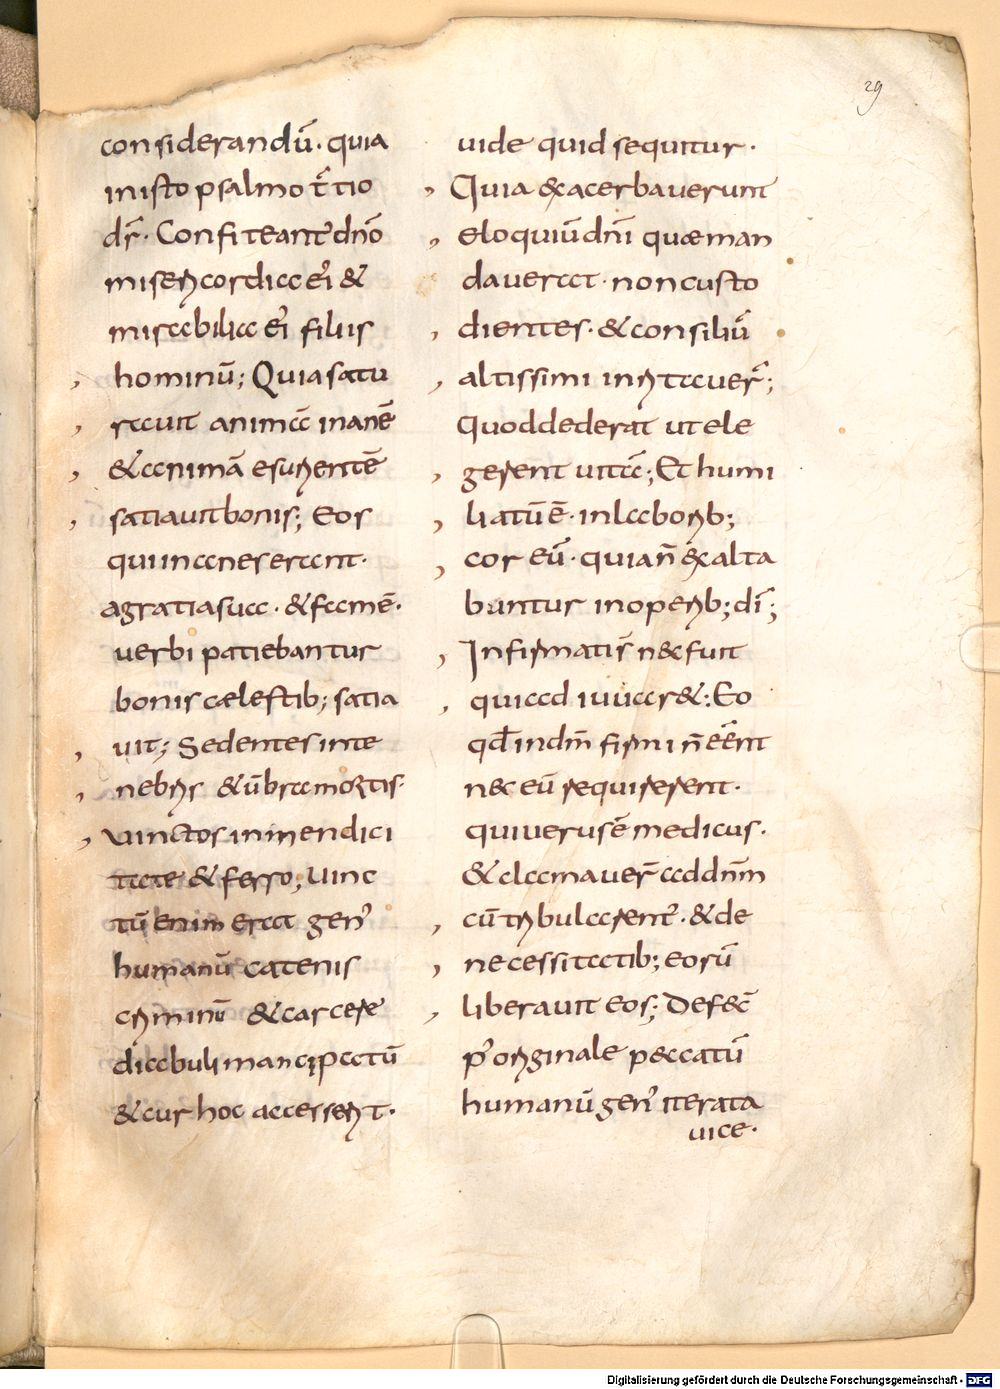 29
considerandū· quia
inisto psalmo t̄tio
dr̄· Confiteant̄ dn̄o
misericordiae ei᾽ &
mirabilia ei᾽ filiis
hominū; Quia satu
rauit animā inanē
& animā esurientē
satiauit bonis; Eos
qui inanes erant·
a gratia sua· & famē·
uerbi patiebantur
bonis caelestib; satia
uit; Sedentes inte
nebris & ūbra mortis·
Vinctos in mendici
tate & ferro; Uinc
tū enim erat gen᾽
humanū catenis
criminū & carcere
diabuli mancipatū
& cur hoc accesserit·
uide quid sequitur·
Quia & acerbauerunt
eloquiū dn̄i quae man
dauerat· non custo
dientes· & consiliū
altissimi inritauer̄;
Quod dederat ut ele
gerent uitā; Et humi
liatū ē· in laborib;
cor eū· quia n̄ & alta
buntur in operib; dī;
Infirmati s̄ nec fuit
qui adiuuaret; Eo
qd̄ in dn̄o firmi n̄ eēnt
nec eū requirerent·
qui uerus ē medicus·
& clamauer̄ ad dn̄m
cū tribularent̄· & de
necessitatib; eorū
liberauit eos; Defect̄
p᾽ originale peccatū
humanū gen᾽ iterata
uice·
Digitalisierung gefördert durch die Deutsche Forschungsgemeinschaft - DFG